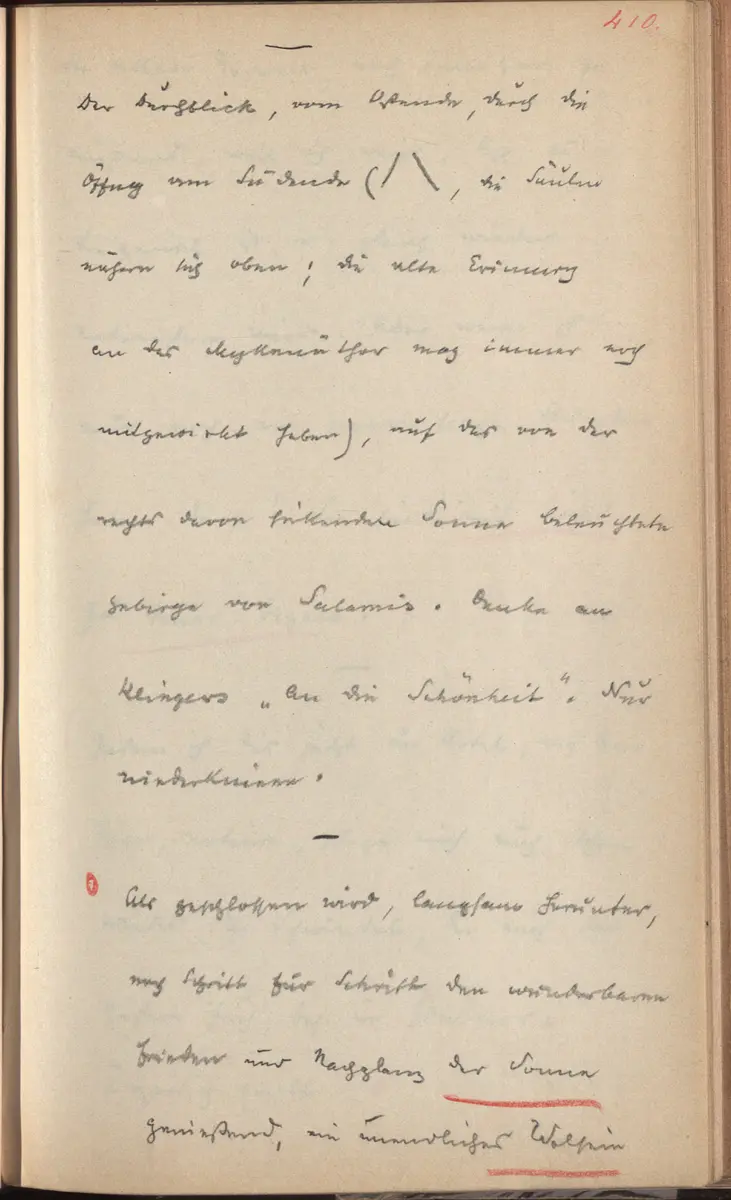 410.
Der Durchblick, vom Ostende, durch die
Öffnug am Südende (/ \, die Säulen
nähern sich oben; die alte Erinnerg
an das Mykenäthor mag immer noch
mitgewirkt haben), auf das von der
rechts davon sinkenden Sonne beleuchtete
Gebirge von Salamis. Denke an
Klingers „An die Schönheit". Nur
niederknieen.
Als geschlossen wird, langsam herunter,
noch Schritt für Schritt den wunderbaren
Frieden und Nachglanz der Sonne
genießend, ein unendliches Wolsein